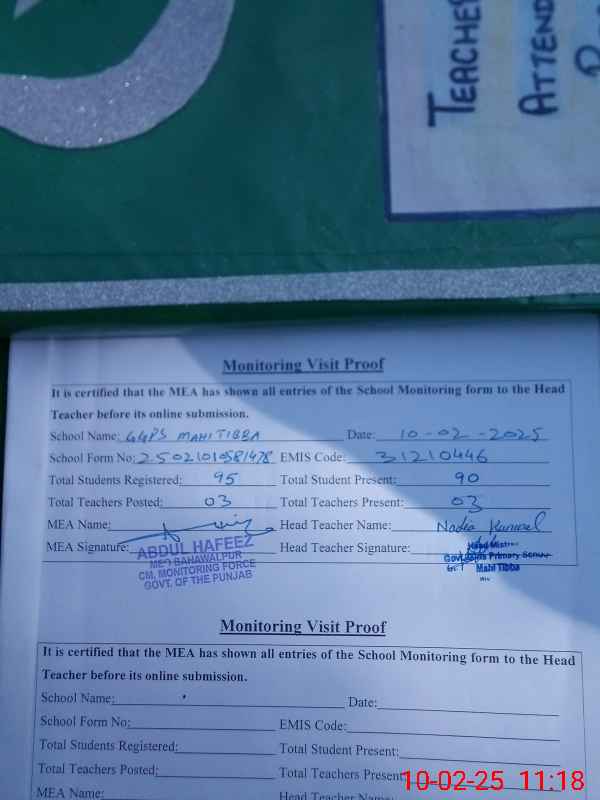 TEACHE
ATTEND
Monitoring Visit Proof
It is certified that the MEA has shown all entries of the School Monitoring form to the Head
Teacher before its online submission.
School Name: GGPS MAHI TIBBA Date: 10-02-2025
School Form No: 25021010581478 EMIS Code: 31210446
Total Students Registered: 95 Total Student Present: 90
Total Teachers Posted: 03 Total Teachers Present: 03
MEA Name: Head Teacher Name: Nadia Kanwal
MEA Signature: Head Teacher Signature:
ABDUL HAFEEZ
MEO BAHAWALPUR
CM, MONITORING FORCE
GOVT. OF THE PUNJAB
Head Mistress
Govt. Girls Primary School
Mahi Tibba
Monitoring Visit Proof
It is certified that the MEA has shown all entries of the School Monitoring form to the Head
Teacher before its online submission.
School Name: Date:
School Form No: EMIS Code:
Total Students Registered: Total Student Present:
Total Teachers Posted: Total Teachers Present:
MEA Name: Head Teacher Name:
10-02-25 11:18